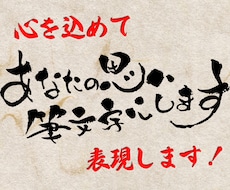 心を込めて
あなたの思い
筆文字にします
表現します！